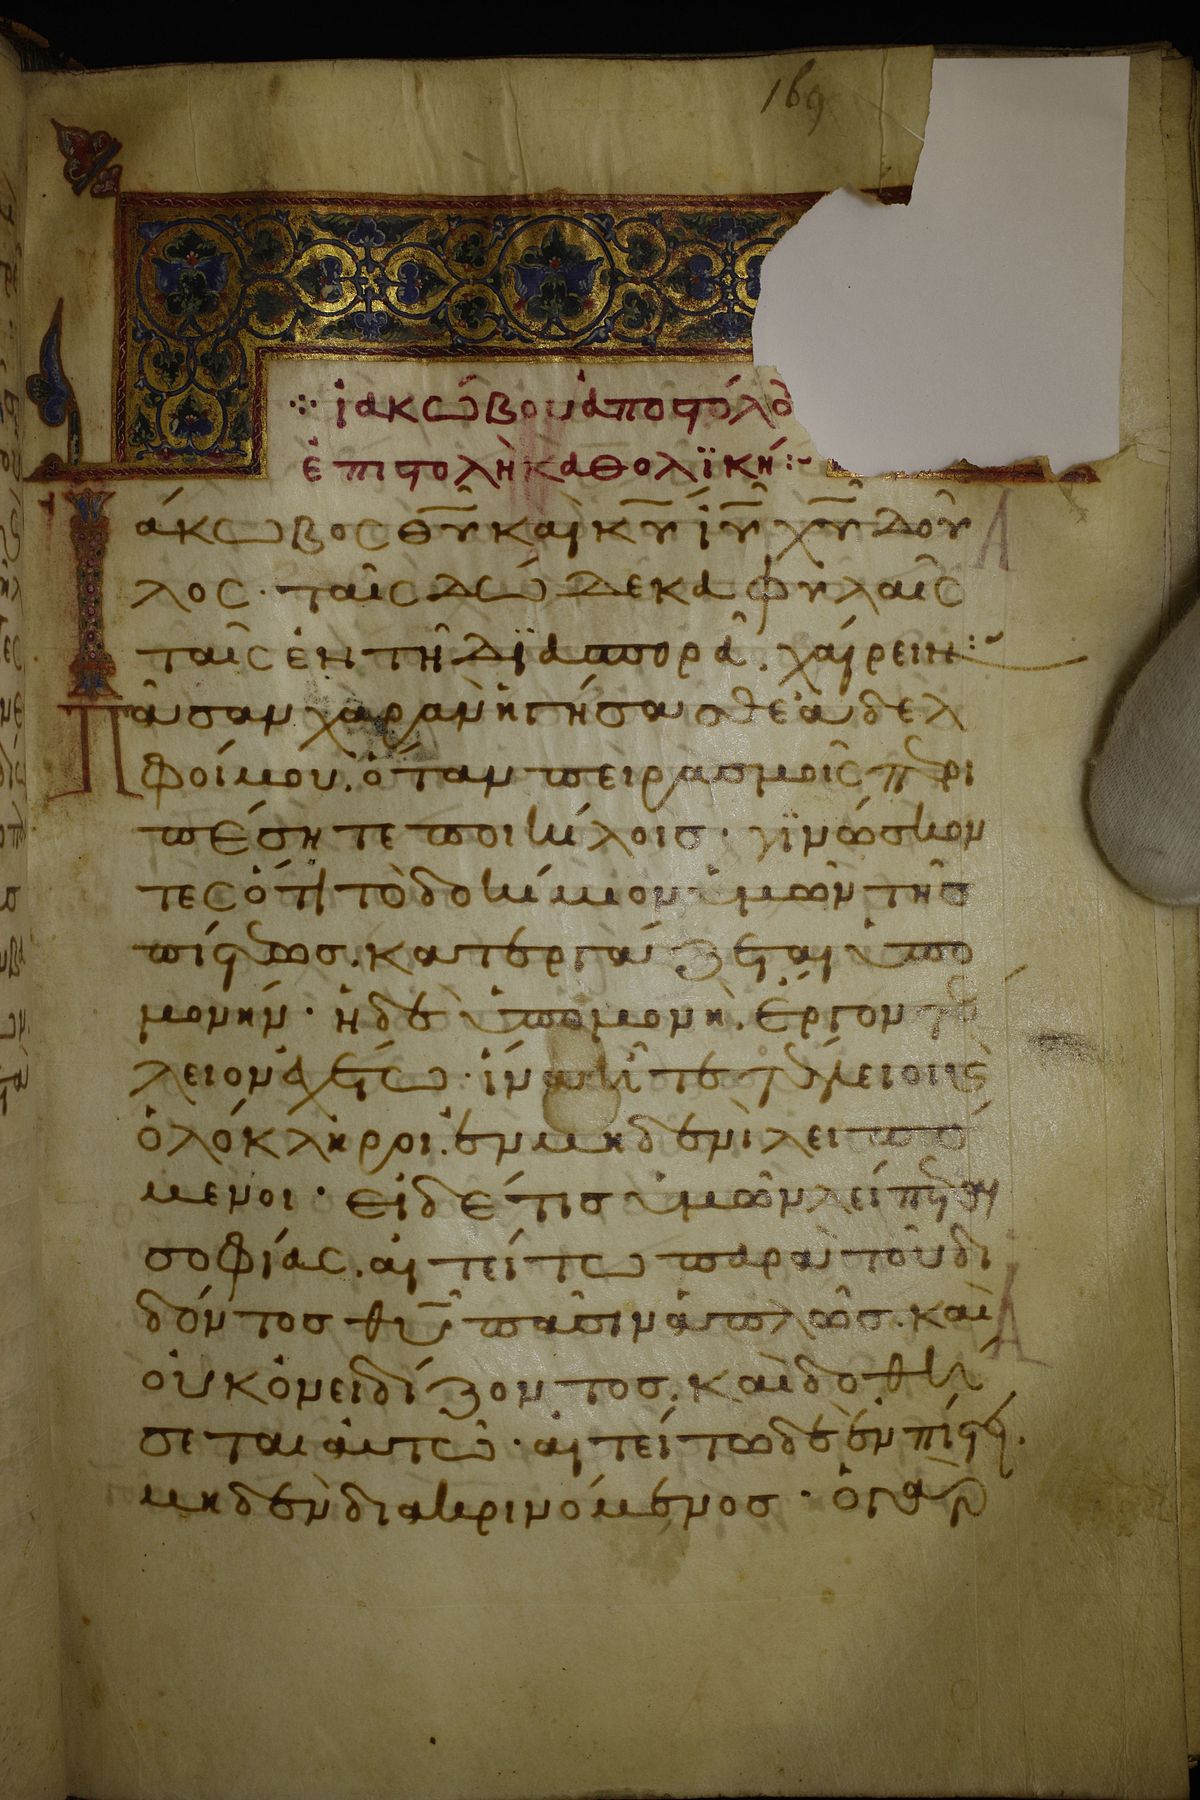 169
ἰακώβου ἀποστόλου
ἐπιστολὴ καθολϊκή :~
Ιάκωβος θ̅υ̅ καὶ κ̅υ̅ ἰ̅υ̅ χ̅υ̅ δοῦ
λος · ταῖς δώδεκα φυλαῖς
ταῖς ἐν τῆ δϊασπορᾶ . χαίρειν :~
Πᾶσαν χαρὰν ἡγήσασθε ἀδελ
φοί μου . ὅταν πειρασμοῖς περι
πέσητε ποικίλοις · γϊνώσκον
τες ὅτι τὸ δοκίμιον ὑμῶν τῆς
πίστεως . κατεργάζεται ὑπο
μονήν · ἡ δὲ ὑπομονὴ . ἔργον τέ
λειον ἐχέτω · ἵνα ἦτε τέλειοι καὶ
ὁλόκληροι . ἐν μηδενὶ λειπό
μενοι · εἰ δέ τις ὑμῶν λείπεται
σοφίας . αἰτείτω παρὰ τοῦ δι
δόντος θ̅υ̅ πᾶσιν ἁπλῶς . καὶ
οὐκ ὀνειδίζοντος . καὶ δοθή
σεται αὐτῶ · αἰτείτω δὲ ἐν πίστει .
μηδὲν διακρινόμενος · ὁ γὰρ